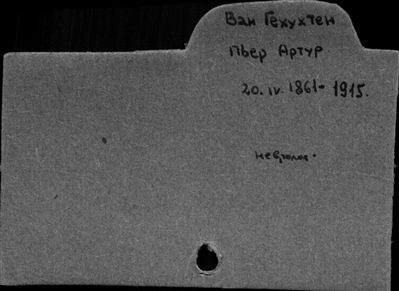 Ван Гехухтен
Пьер Артур
20.IV.1861-1915.
невролог.